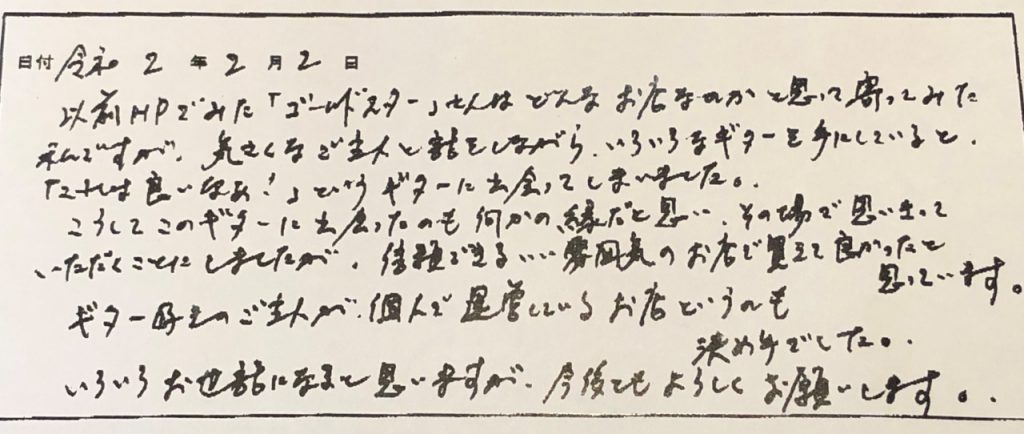 日付 令和 2 年 2 月 2 日
以前HPでみた「ゴールドスター」さんは どんな お店なのか と思って寄ってみた
私ですが、気さくなご主人と話をしながら、いろいろなギターを手にしていると、
「これは良いなあ!」というギターに出会ってしまいました。
こうしてこのギターに出会ったのも何かの縁だと思い、その場で思い切って
いただくことにしましたが、信頼できるいい雰囲気のお店で買えて良かったと
思っています。
ギター好きのご主人が、個人で運営しているお店というのも
決め手でした。
いろいろお世話になると思いますが、今後ともよろしくお願いします。